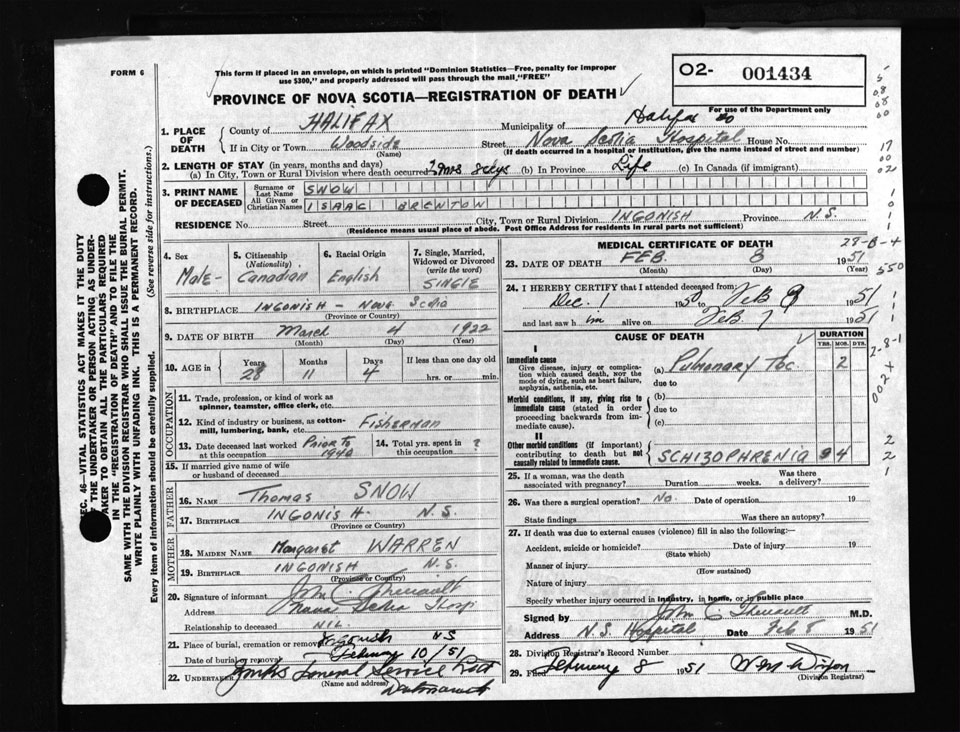 FORM 6
This form if placed in an envelope, on which is printed "Dominion Statistics—Free, penalty for improper
use $300," and properly addressed will pass through the mail, "FREE"
PROVINCE OF NOVA SCOTIA—REGISTRATION OF DEATH
O2- 001434
For use of the Department only
1. PLACE OF DEATH
County of HALIFAX Municipality of Halifax Co
If in City or Town Woodside Street Nova Scotia Hospital House No.
(Name) (If death occurred in a hospital or institution, give the name instead of street and number)
2. LENGTH OF STAY (in years, months and days)
(a) In City, Town or Rural Division where death occurred 2 mos 8 dys (b) In Province Life (c) In Canada (if immigrant)
3. PRINT NAME OF DECEASED
Surname or Last Name SNOW
All Given or Christian Names ISAAC BRENTON
RESIDENCE No. Street City, Town or Rural Division INGONISH Province N.S.
(Residence means usual place of abode. Post Office Address for residents in rural parts not sufficient)
4. Sex
Male
5. Citizenship
(Nationality)
Canadian
6. Racial Origin
English
7. Single, Married,
Widowed or Divorced
(write the word)
SINGLE
8. BIRTHPLACE INGONISH - Nova Scotia
(Province or Country)
9. DATE OF BIRTH March 4 1922
(Month) (Day) (Year)
10. AGE in
Years Months Days If less than one day old
28 11 4 hrs. or min.
OCCUPATION
11. Trade, profession, or kind of work as
spinner, teamster, office clerk, etc.
12. Kind of industry or business, as cotton-
mill, lumbering, bank, etc. Fisherman
13. Date deceased last worked at this occupation Prior to 1940
14. Total yrs. spent in this occupation ?
15. If married give name of wife
or husband of deceased
FATHER
16. NAME Thomas SNOW
17. BIRTHPLACE INGONISH. N.S.
(Province or Country)
MOTHER
18. MAIDEN NAME Margaret WARREN
19. BIRTHPLACE INGONISH N.S.
(Province or Country)
20. Signature of informant John C. Theriault
Address Nova Scotia Hosp
Relationship to deceased NIL.
21. Place of burial, cremation or removal Ingonish NS
Date of burial or removal February 10/51
22. UNDERTAKER Funeral Service
(Name and address) Dartmouth
MEDICAL CERTIFICATE OF DEATH
28-B-4
23. DATE OF DEATH FEB 8 1951
(Month) (Day) (Year)
24. I HEREBY CERTIFY that I attended deceased from:
Dec. 1 1950 Feb 8 1951
and last saw him alive on Feb 7 1951
CAUSE OF DEATH
DURATION
YRS. MOS. DYS.
I
Immediate cause
Give disease, injury or complica-
tion which caused death, not the
mode of dying, such as heart failure,
asphyxia, asthenia, etc.
(a) Pulmonary Tbc 2
due to
Morbid conditions, if any, giving rise to
immediate cause (stated in order
proceeding backwards from im-
mediate cause).
(b)
due to
(c)
II
Other morbid conditions (if important)
contributing to death but not
causally related to immediate cause.
SCHIZOPHRENIA 4
25. If a woman, was the death
associated with pregnancy? Duration weeks. Was there a delivery?
26. Was there a surgical operation? No. Date of operation 19
State findings Was there an autopsy?
27. If death was due to external causes (violence) fill in also the following:—
Accident, suicide or homicide? Date of injury 19
(State which)
Manner of injury
(How sustained)
Nature of injury
Specify whether injury occurred in industry, in home, or in public place
Signed by John C. Theriault M.D.
Address N.S. Hospital Date Feb 8 1951
28. Division Registrar's Record Number
29. Filed February 8 1951
(Division Registrar)
SEC. 46—VITAL STATISTICS ACT MAKES IT THE DUTY
OF THE UNDERTAKER OR PERSON ACTING AS UNDER-
TAKER TO OBTAIN ALL THE PARTICULARS REQUIRED
IN THE "REGISTRATION OF DEATH" AND TO FILE THE
SAME WITH THE DIVISION REGISTRAR WHO SHALL ISSUE THE BURIAL PERMIT.
WRITE PLAINLY WITH UNFADING INK. THIS IS A PERMANENT RECORD.
Every item of information should be carefully supplied. (See reverse side for instructions.)
550
2-8-1